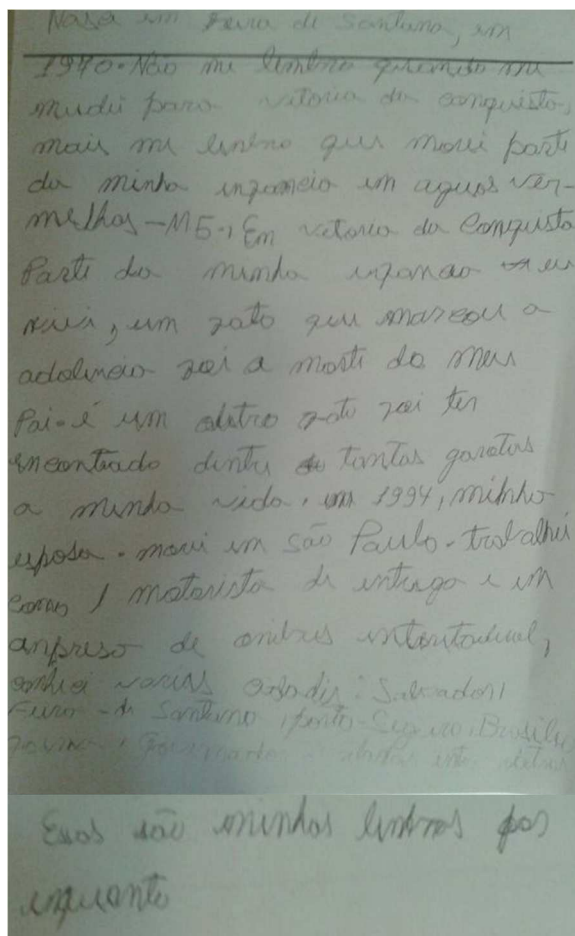 Nasa em Feira de Santana, em
1970. Não me lembro quando me
mudei para vitoria da conquista,
mais me lembro que morei parte
da minha infancia em aguas ver-
melhas - MG., Em vitoria da Conquista
Parte da minha infancia eu
vivi, um fato que marcou a
foi a morte do meu
Pai. é um fato foi ter
encontrado dentre tantas garotas
a minha vida, em 1994, minha
esposa. morei em são Paulo. trabalhei
como motorista de entrega e em
anpresa de onibus
varias Salvador,
de Santana, porto Seguro, Brasilia

Essas são minhas por
enquanto